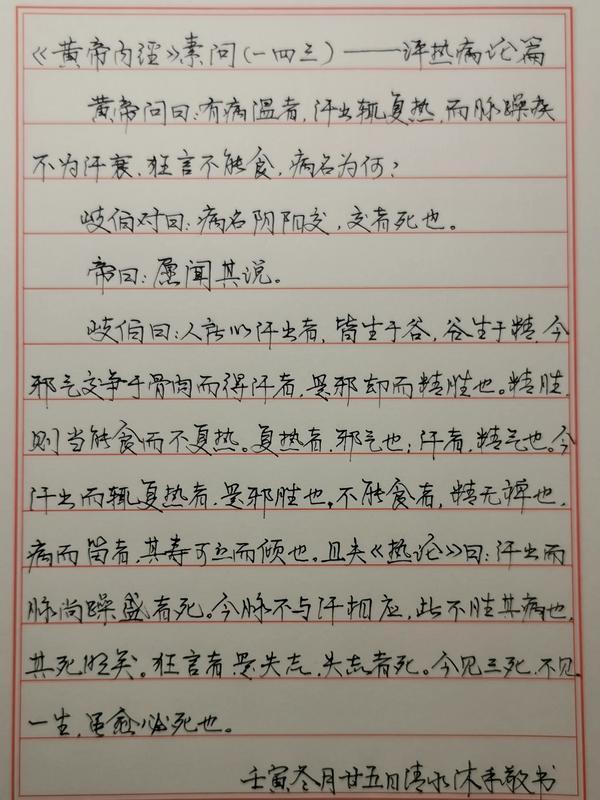 《黄帝内径》素问(一四三)——评热病论篇
黄帝问曰:有病温者,汗出辄复热,而脉躁疾
不为汗衰,狂言不能食,病名为何?
岐伯对曰:病名阴阳交,交者死也。
帝曰:愿闻其说。
岐伯曰:人所以汗出者,皆生于谷,谷生于精,今
邪气交争于骨肉而得汗者,是邪却而精胜也。精胜,
则当能食而不复热。复热者,邪气也;汗者,精气也。今
汗出而辄复热者,是邪胜也。不能食者,精无裨也,
病而留者,其寿可立而倾也。且夫《热论》曰:汗出而
脉尚躁盛者死。今脉不与汗相应,此不胜其病也,
其死明矣。狂言者,是失志,失志者死。今见三死,不见
一生,虽愈必死也。
壬寅冬月廿五日清水沐手敬书